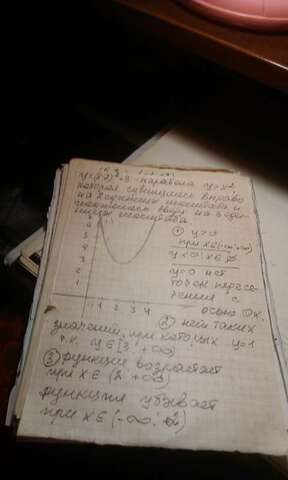 y=(x-2)²+3 - парабола y=x²,
которая сдвинулась вправо
на 2 единицы масштаба и
вверх на 3 еди-
ницы масштаба.
① y>0
при x∈(-∞;+∞)
y<0: x∈∅
y=0 нет
точек пересе-
чения с
осью Ox.
② нет таких
значений, при которых y=1
т.к. y∈[3;+∞)
③ функция возрастает
при x∈(2;+∞)
функция убывает
при x∈(-∞;2)
6
5
4
3
2
1
-1 1 2 3 4